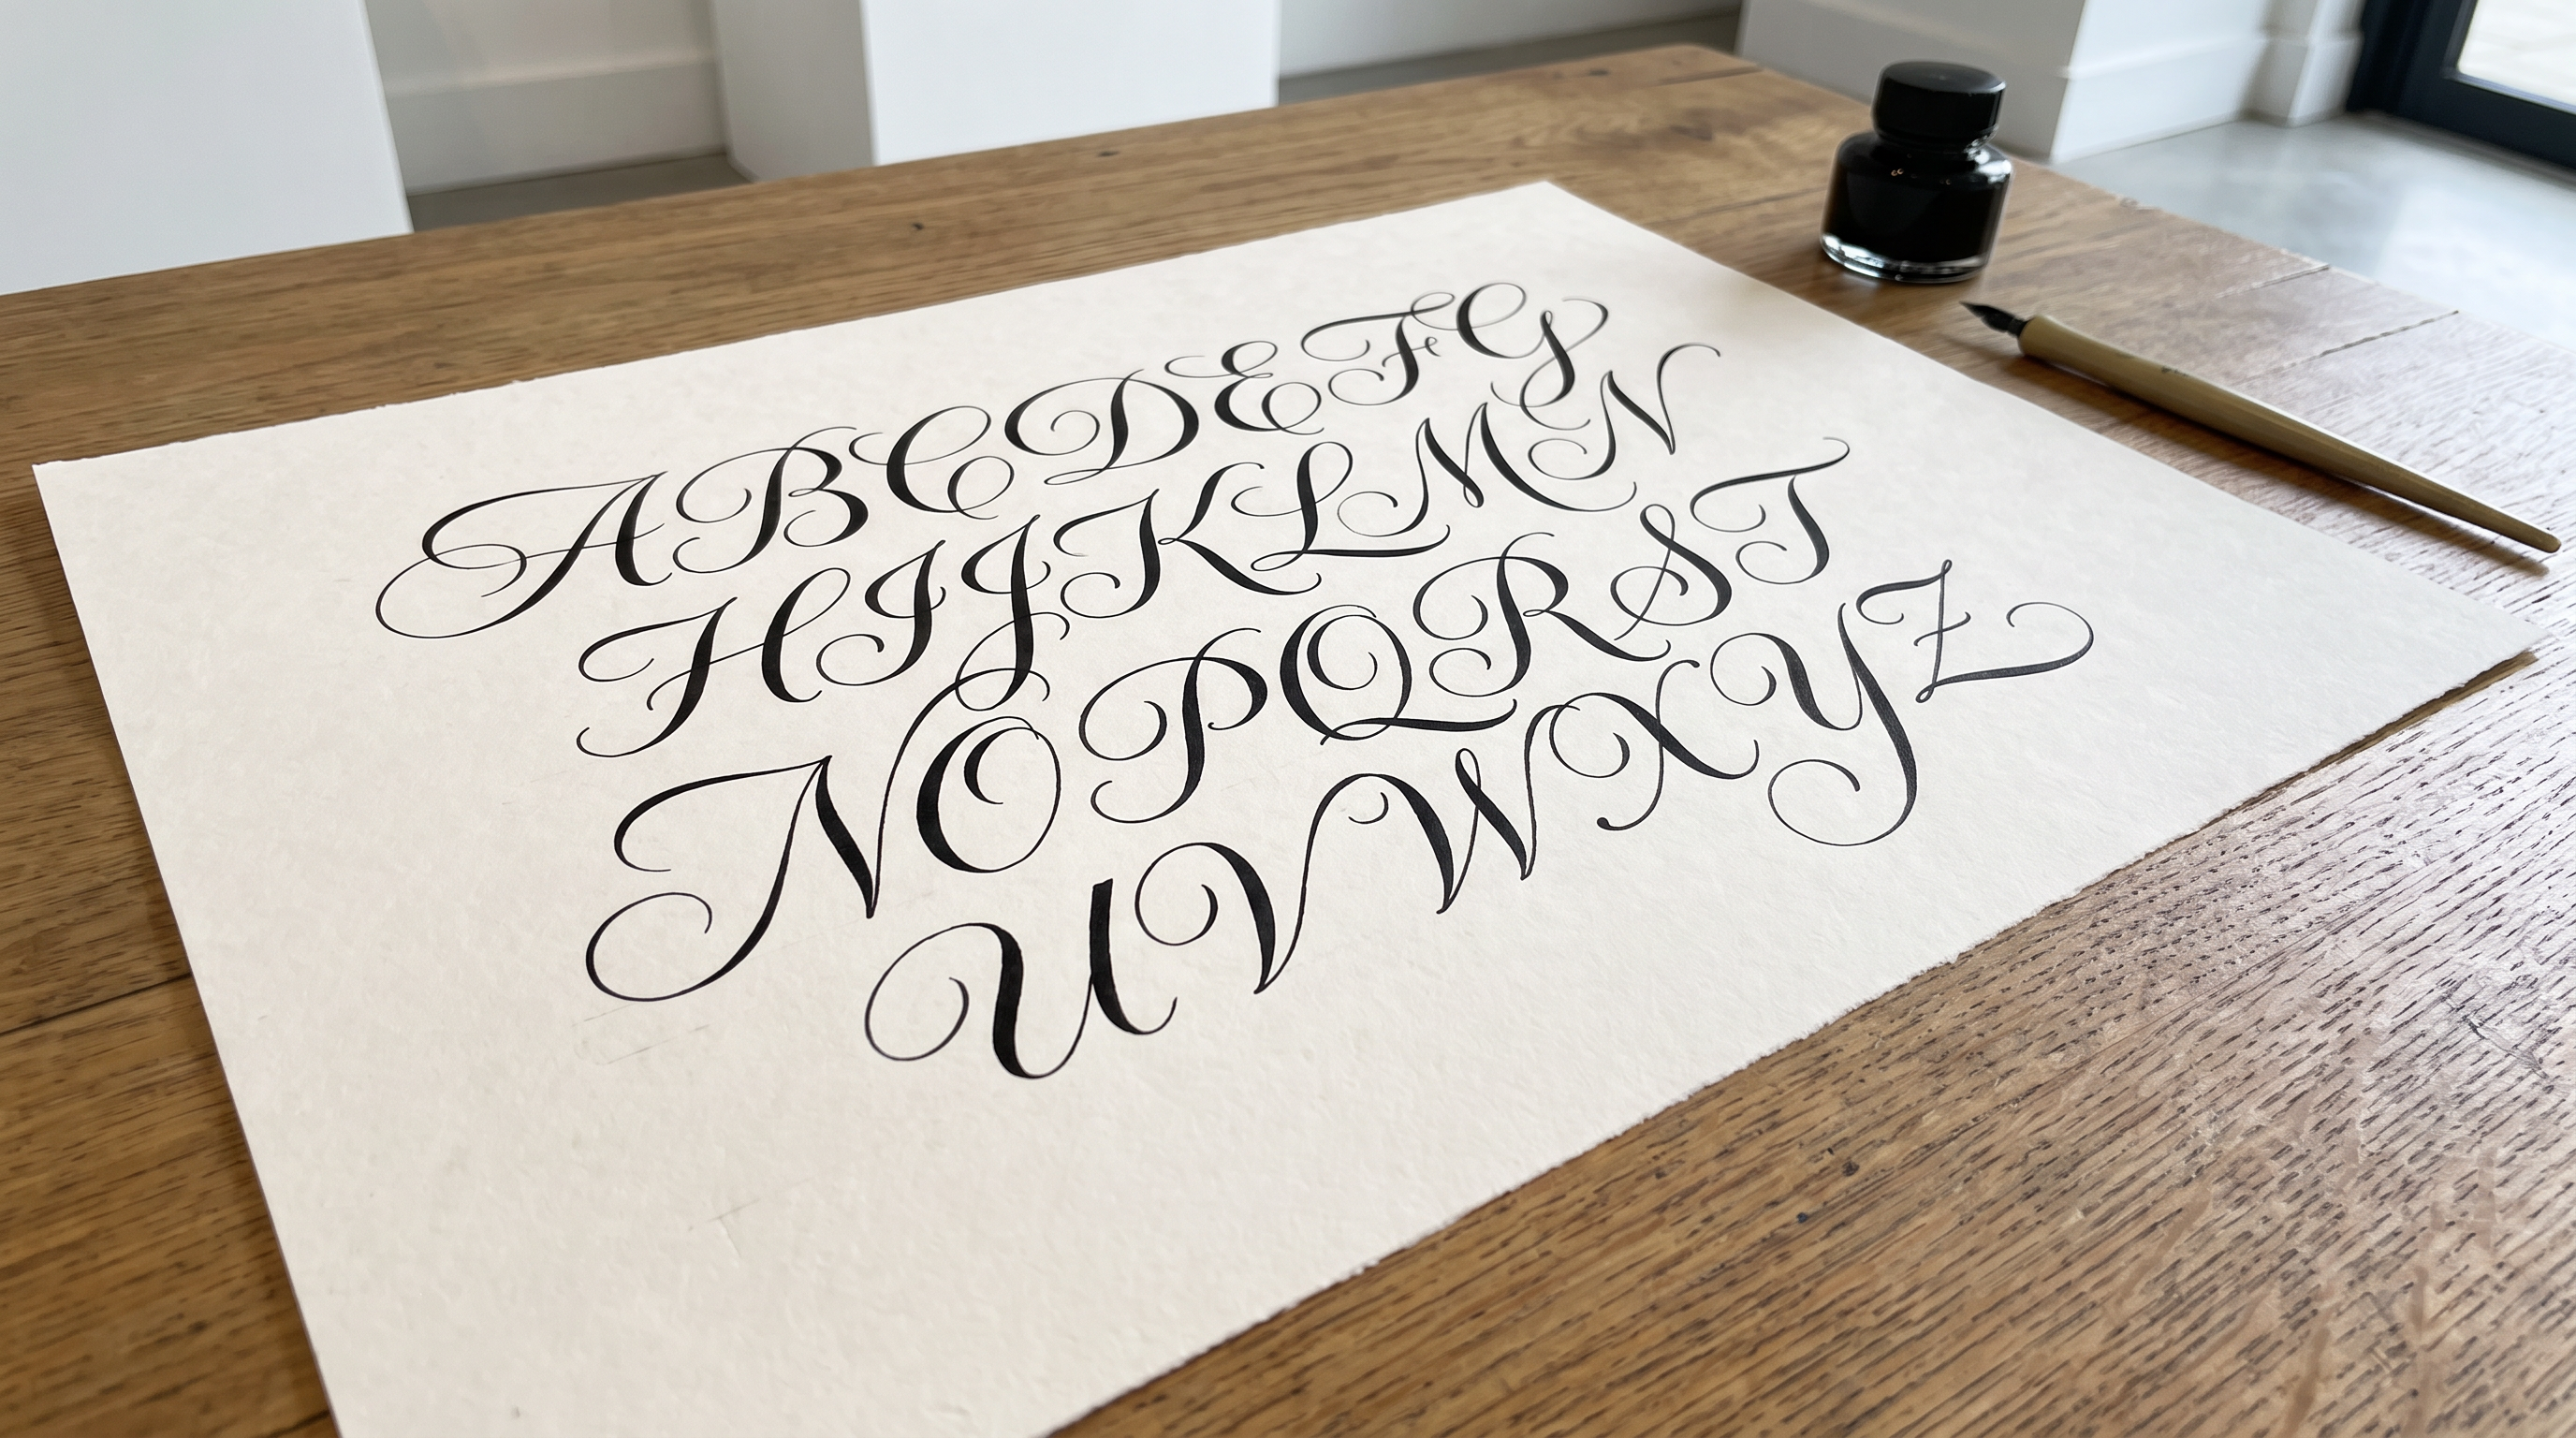 A B C D E F G
H I J K L M N
N O P Q R S T
U V W X Y Z